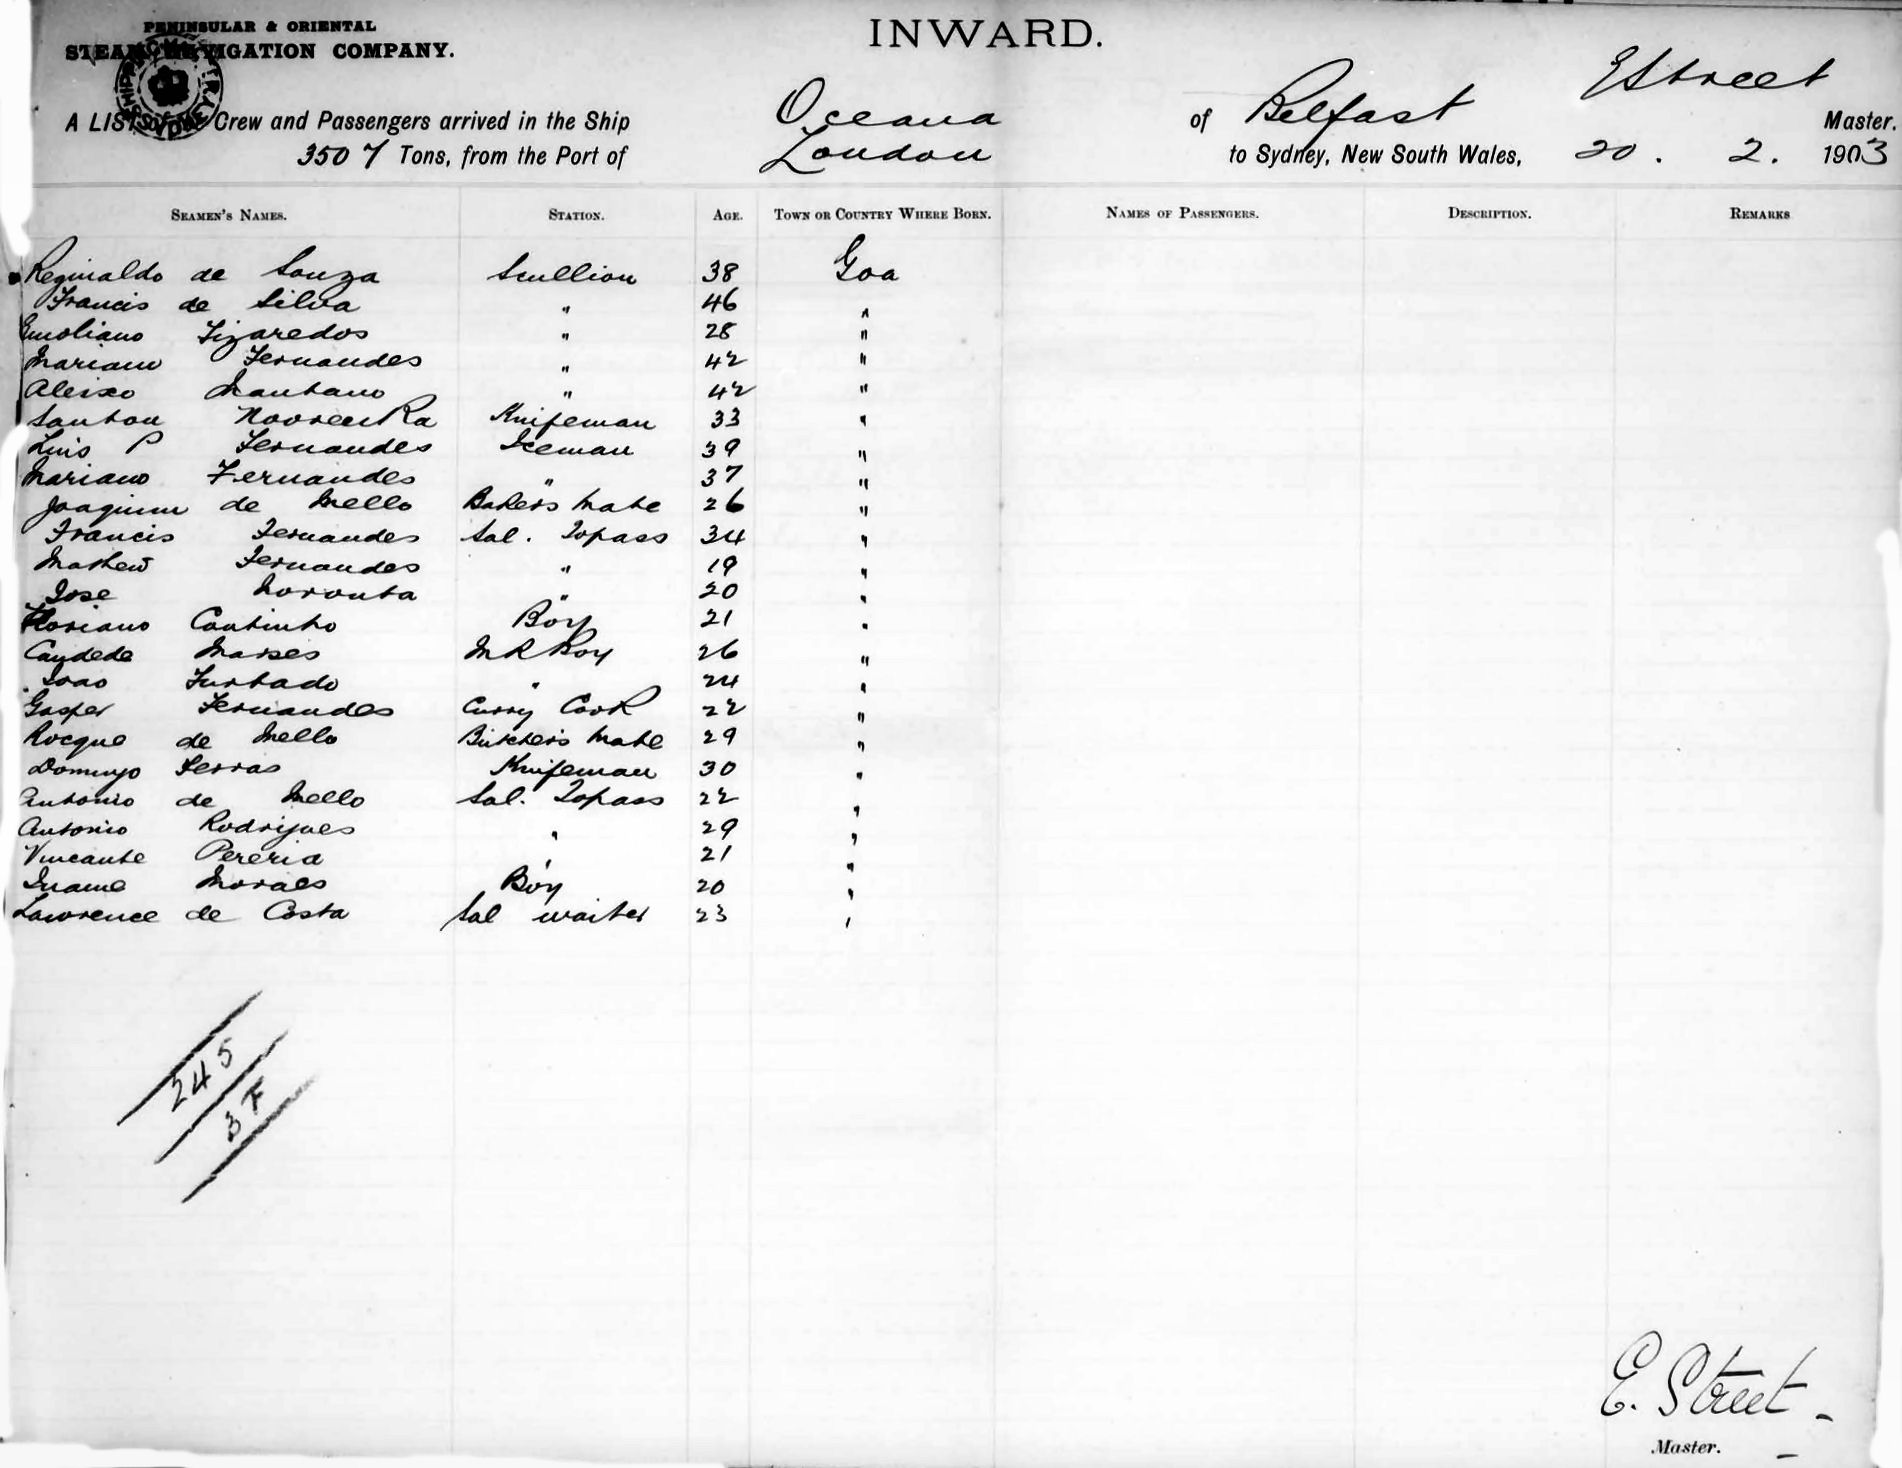 PENINSULAR & ORIENTAL
STEAM NAVIGATION COMPANY.
INWARD.
E Street
A LIST of the Crew and Passengers arrived in the Ship Oceana of Belfast Master.
3507 Tons, from the Port of London to Sydney, New South Wales, 20. 2. 1903
SEAMEN'S NAMES. STATION. AGE. TOWN OR COUNTRY WHERE BORN. NAMES OF PASSENGERS. DESCRIPTION. REMARKS
Reginaldo de Souza Scullion 38 Goa
Francis de Silva " 46 "
Emoliano Figaredos " 28 "
Mariano Fernandes " 42 "
Aleixo " 42 "
Knifeman 33 "
Luis P Fernandes Iceman 39 "
Mariano Fernandes " 37 "
Joaquim de Mello Bakers Mate 26 "
Francis Fernandes Sal. Topass 34 "
Mathew Fernandes " 19 "
Jose Noronha " 20 "
Floriano Coutinho Boy 21 "
Candede M R Boy 26 "
Joao Furtado " 24 "
Gasper Fernandes Curry Cook 22 "
Rocque de Mello Butchers Mate 29 "
Domingo Ferras Knifeman 30 "
Antonio de Mello Sal. Topass 22 "
Antonio Rodrigues " 29 "
Vincante Pereria " 21 "
Moraes Boy 20 "
Lawrence de Costa Sal waiter 23 "
245
3 F
E. Street
Master.